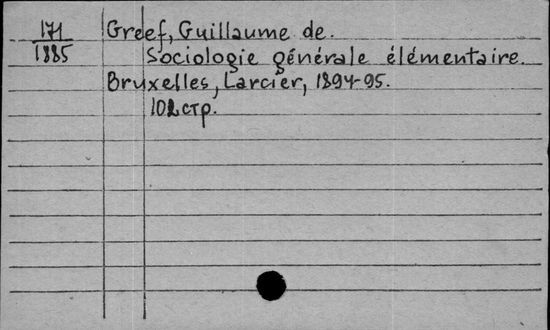 171 Greef, Guillaume de.
1885 Sociologie générale élémentaire.
Bruxelles, Larcier, 1894-95.
102 стр.